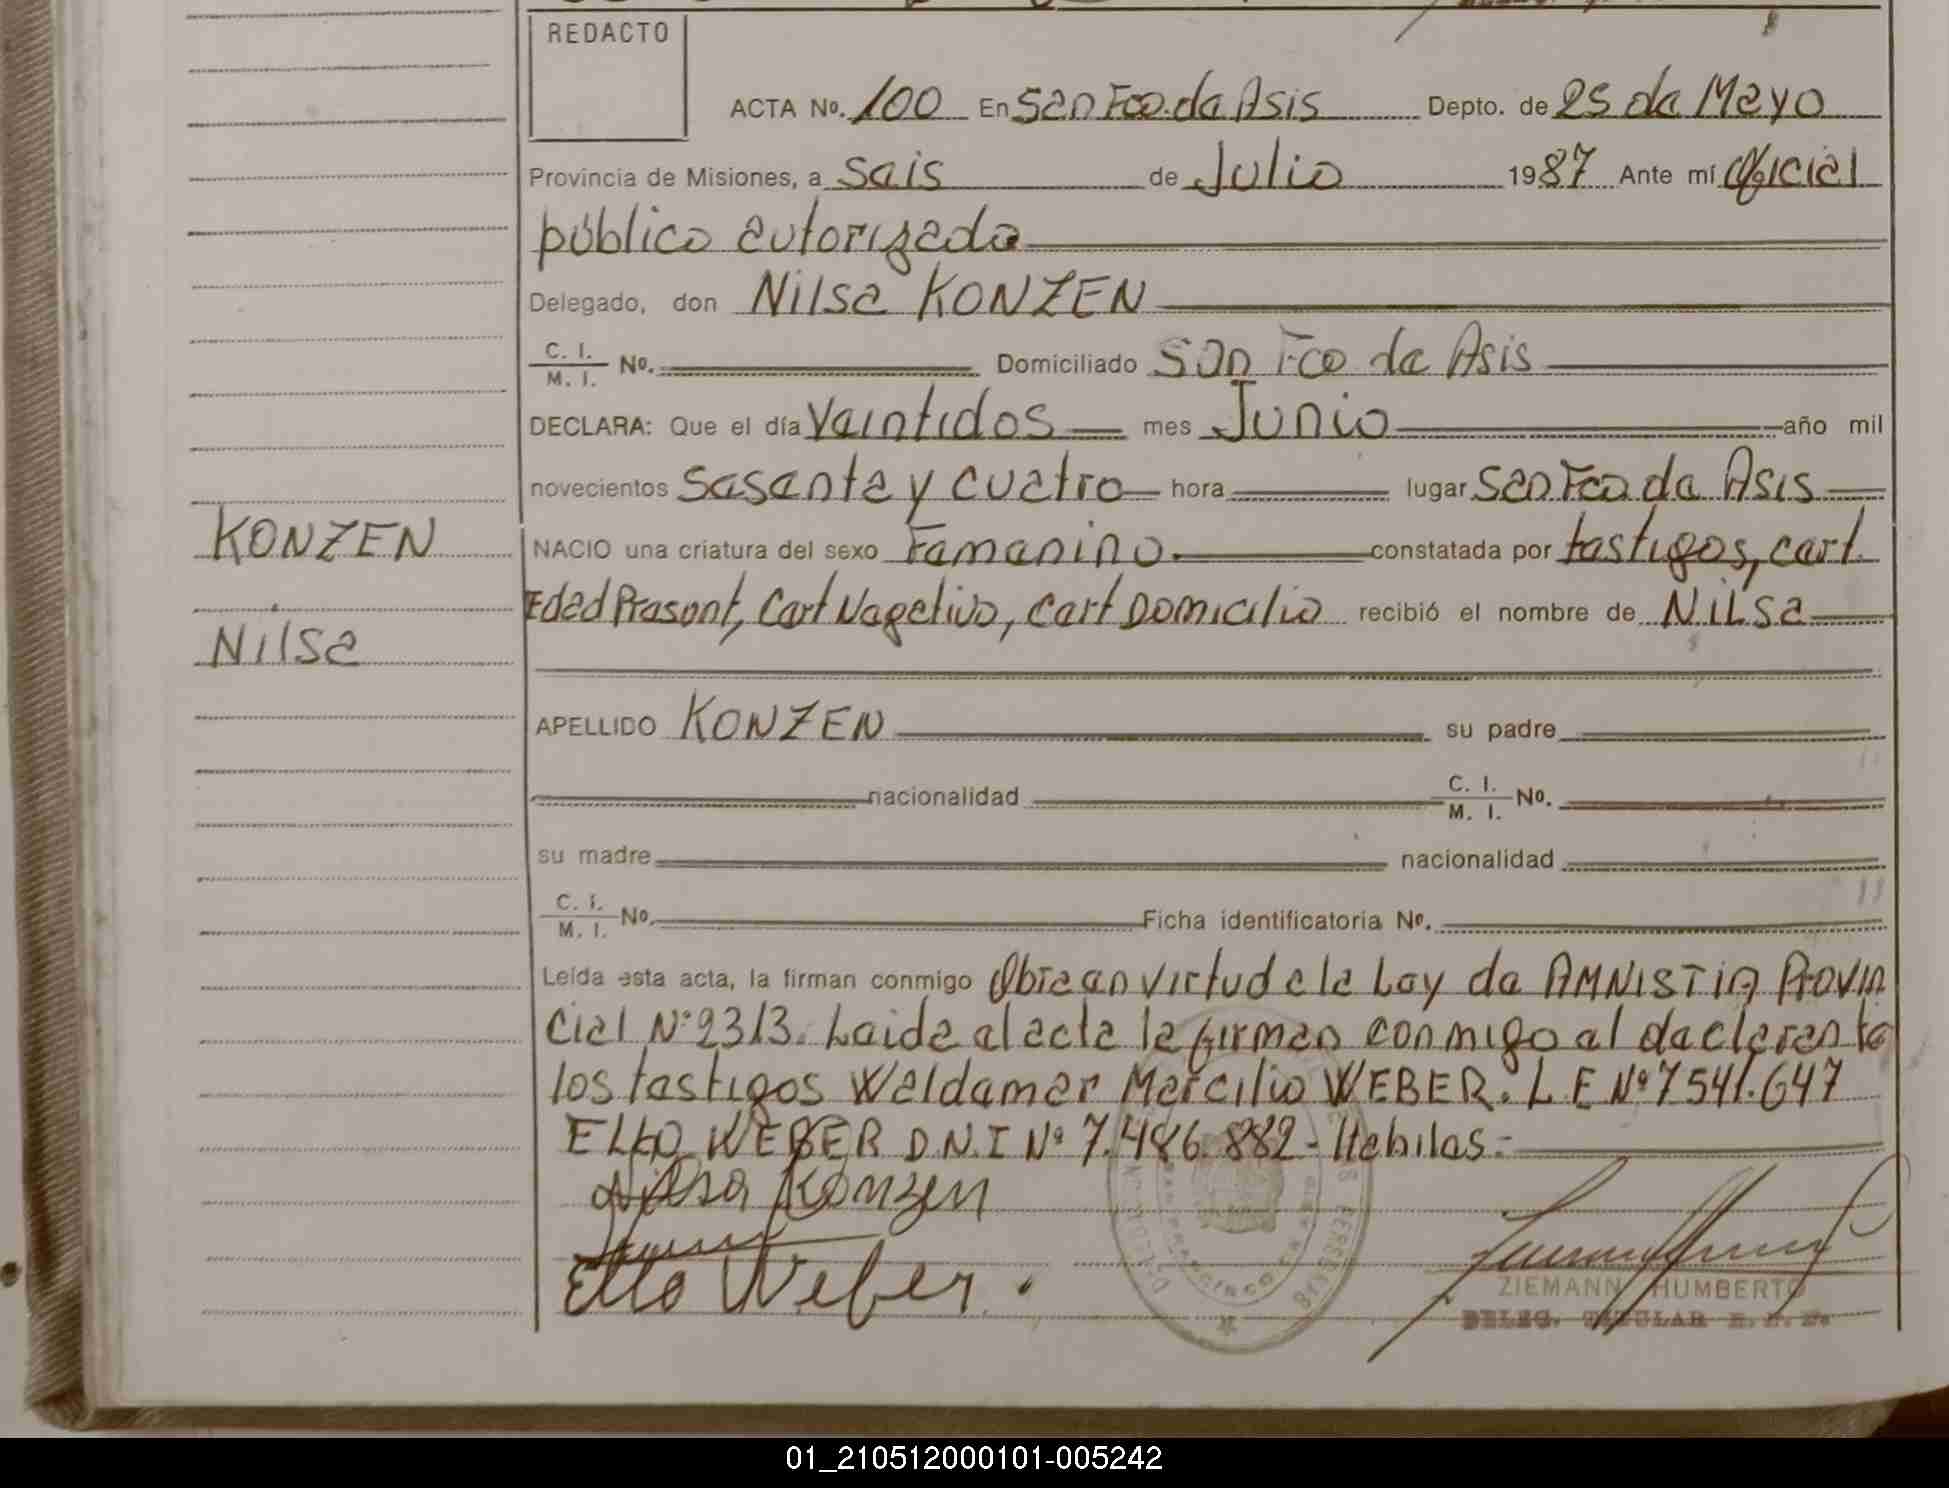 REDACTO
ACTA No. 100 En San Fco. de Asis Depto. de 25 de Mayo
Provincia de Misiones, a seis de Julio 1987 Ante mí Oficial
público autorizado
Delegado, don Nilsa KONZEN
C. I. M. I. No. Domiciliado San Fco de Asis
DECLARA: Que el día Veintidos mes Junio año mil
novecientos Sesenta y cuatro hora lugar San Fco de Asis
KONZEN
NACIO una criatura del sexo Femenino. constatada por testigos, cert.
Edad Presont, Cert Negativo, Cert Domicilio recibió el nombre de Nilsa
Nilsa
APELLIDO KONZEN su padre
nacionalidad C. I. M. I. No.
su madre nacionalidad
C. I. M. I. No. Ficha identificatoria No.
Leída esta acta, la firman conmigo Obra en virtud a la Ley de AMNISTIA PROVIN
Cial Nº 2313. Leida el acta la firman conmigo el declarante
los testigos Waldemar Marcilio WEBER. L E Nº 7541.647
ELLO WEBER D.N.I Nº 7.486.882 - Habiles.-
Nilsa Konzen
Ello Weber.
ZIEMANN HUMBERTO
DELEG. TITULAR R. P. P.
01_210512000101-005242